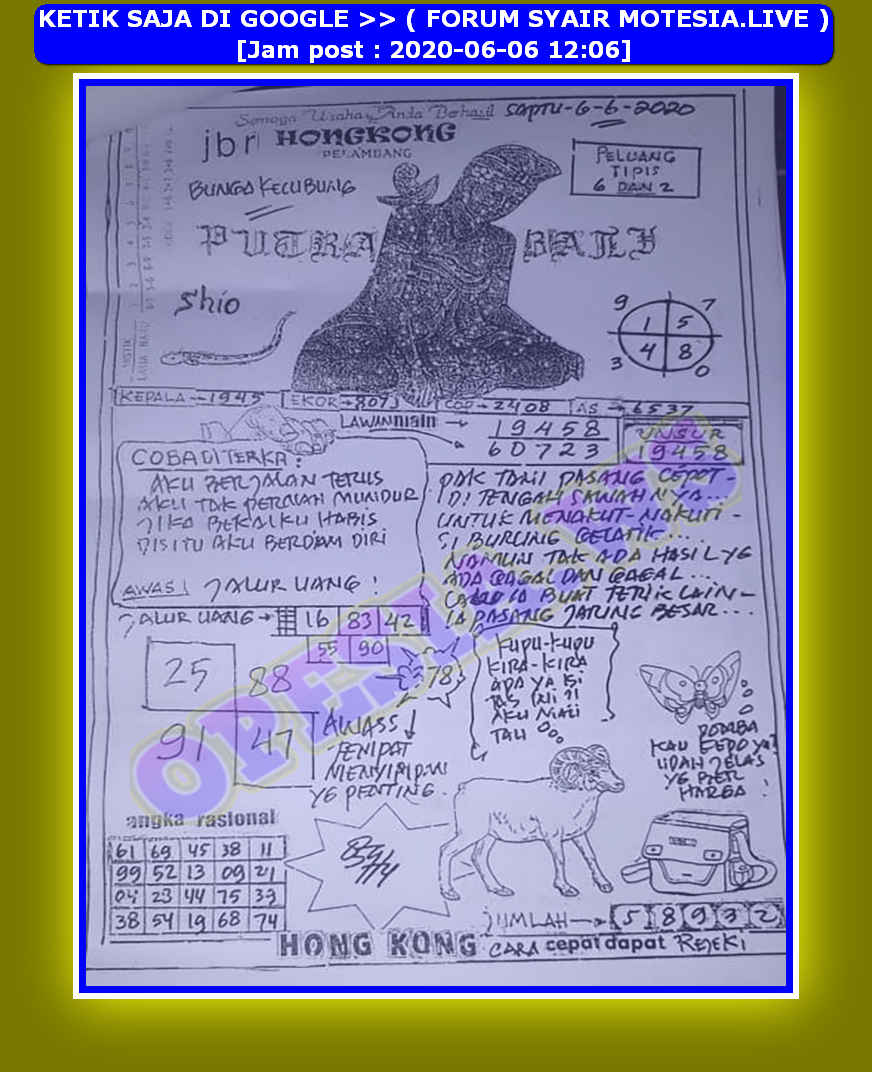 KETIK SAJA DI GOOGLE >> ( FORUM SYAIR MOTESIA.LIVE )
[Jam post : 2020-06-06 12:06]
Semoga Usaha Anda Berhasil SAPTU-6-6-2020
jbr HONGKONG
PELAMBANG
PELUANG
TIPIS
6 DAN 2
BUNGA KECUBUNG
PUTRA
Shio
9 7
1 5
4 8
3 0
KEPALA 1945 EKOR 807 COP 2408 AS 6537
LAWAN main
19458
60723
UNSUR
19458
COBA DITERKA :
AKU BERJALAN TERUS
AKU TAK PERNAH MUNDUR
JIKA BEKALKU HABIS
DISITU AKU BERDIAM DIRI
AWAS! JALUR UANG !
PAK TANI PASANG CEPOT -
DI TENGAH SAWAHNYA ...
UNTUK MENAKUT-NAKUTI -
SI BURUNG GELATIK ...
NAMUN TAK ADA HASIL YG
ADA GAGAL DAN GAGAL ...
BUAT TERIK LAIN -
IA PASANG JARING BESAR ...
JALUR UANG 16 83 42
55 90
25 88
78
91 47
AWASS!
TEMPAT
MENYIMPAN
YG PENTING.
KUPU-KUPU
KIRA-KIRA
ADA YA ISI
TAS INI ?!
AKU MAU
TAU
DOMBA
KAU
UDAH JELAS
YG
HARGA !
OPESIA
angka rasional
61 69 45 38 11
99 52 13 09 21
04 23 44 75 33
38 54 19 68 74
JUMLAH 5 8 9 3 2
HONG KONG CARA cepat dapat REJEKI